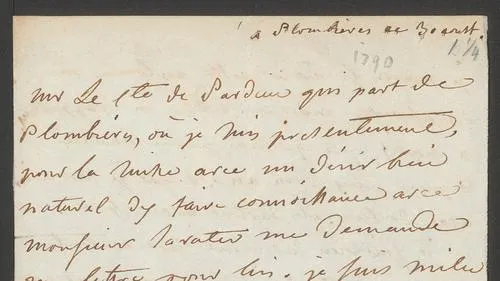 à Plombières ce 30 aoust
1 1/4
1790
Mr Le Cte de Sardice qui part de
Plombières, où je suis présentement,
pour la Suisse avec un désir bien
naturel d'y faire connoissance avec
monsieur lavater me demande
une lettre pour lui. je suis mille